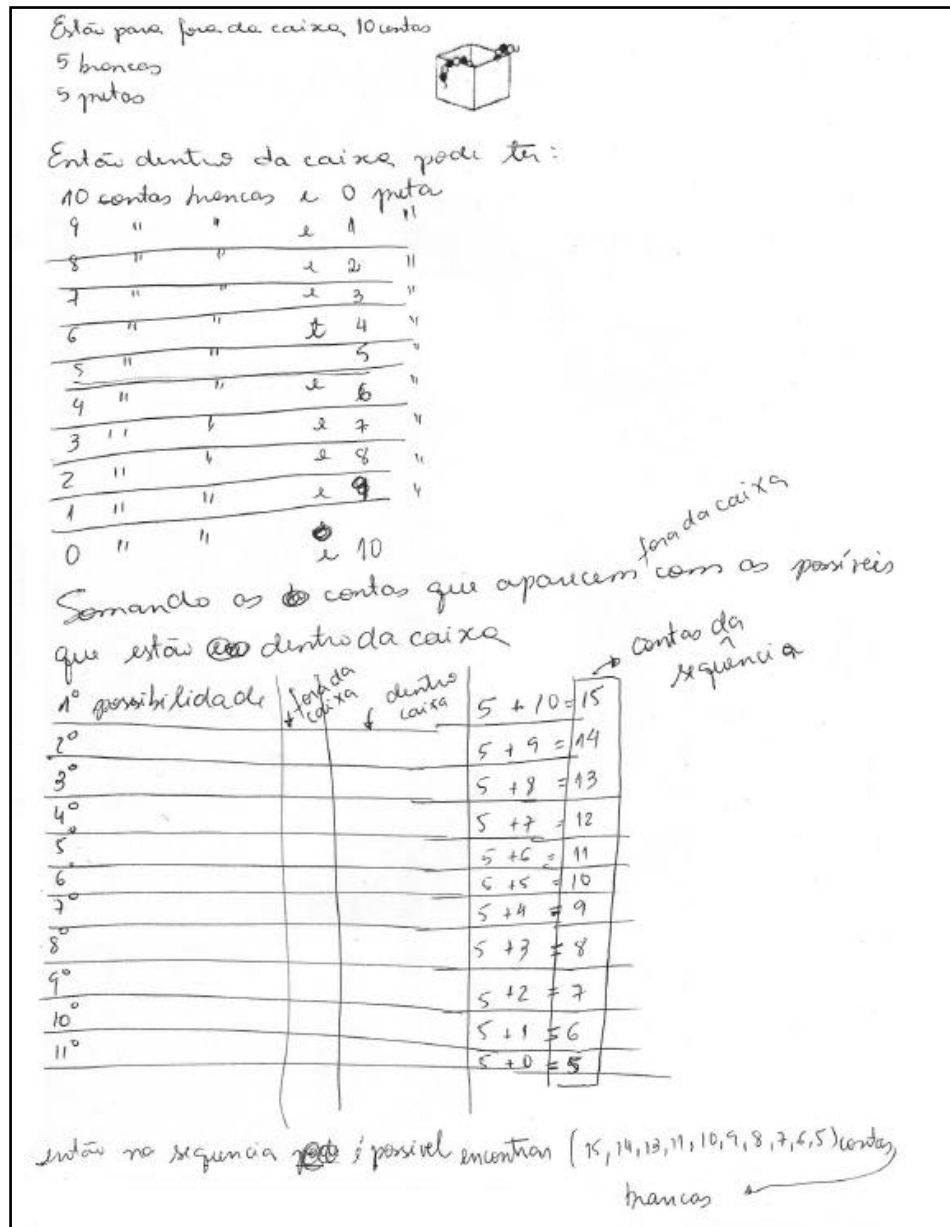 Estão para fora da caixa 10 contas
5 brancas
5 pretas
Então dentro da caixa pode ter:
10 contas brancas e 0 preta
9 " " e 1 "
8 " " e 2 "
7 " " e 3 "
6 " " e 4 "
5 " " 5 "
4 " " e 6 "
3 " " e 7 "
2 " " e 8 "
1 " " e 9 "
0 " " e 10
fora da caixa
Somando as contas que aparecem com as possíveis
que estão dentro da caixa
contas da
sequência
1º possibilidade fora da caixa dentro caixa 5 + 10 = 15
2º 5 + 9 = 14
3º 5 + 8 = 13
4º 5 + 7 = 12
5º 5 + 6 = 11
6 5 + 5 = 10
7º 5 + 4 = 9
8º 5 + 3 = 8
9º 5 + 2 = 7
10º 5 + 1 = 6
11º 5 + 0 = 5
então na sequencia é possivel encontrar (15, 14, 13, 11, 10, 9, 8, 7, 6, 5) contas
brancas